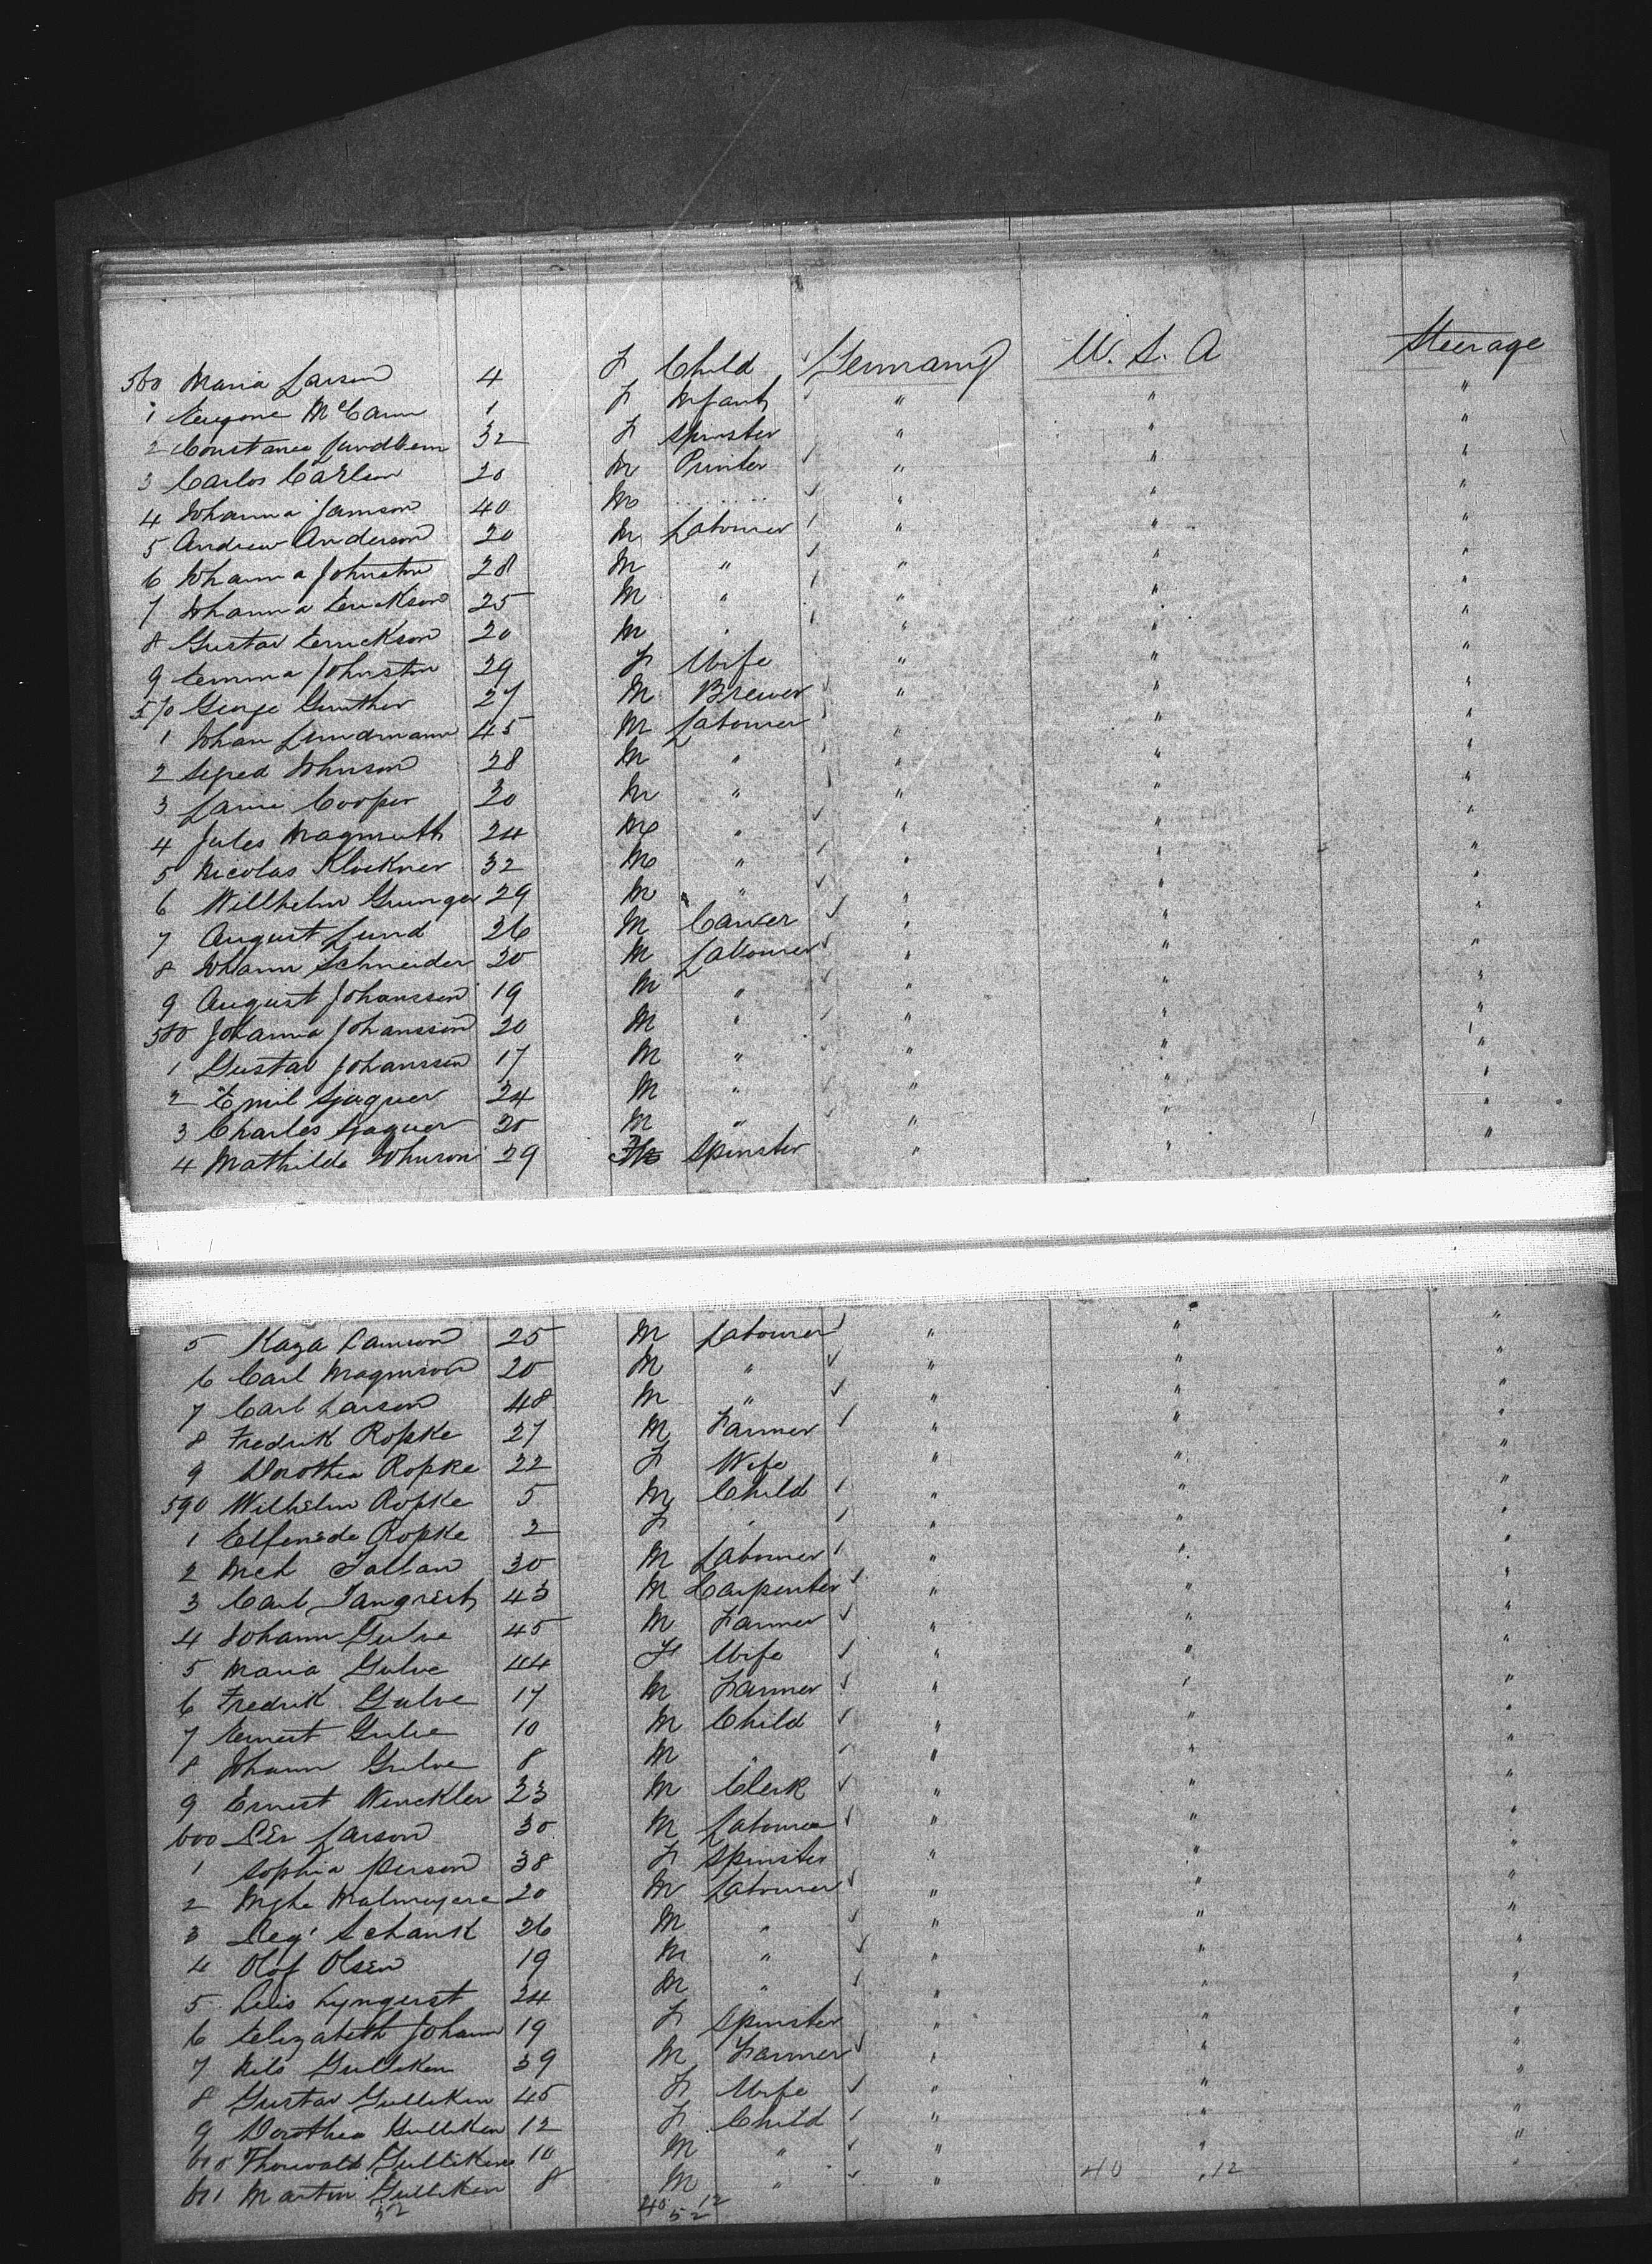 560 Maria Larson 4 F Child Germany U. S. A Steerage
1 Eugone McCann 1 F Infant " " "
2 Constance 32 F Spinster " " "
3 Carlos Carlson 20 M Printer " " "
4 Johanna Jamson 40 M " " "
5 Andrew Anderson 20 M Labourer " " "
6 Johanna Johnston 28 M " " " "
7 Johanna Erickson 25 M " " " "
8 Gustav Errickson 20 M " " " "
9 Emma Johnston 29 F Wife " " "
570 George Gunther 27 M Brewer " " "
1 Johan Lundmann 45 M Labourer " " "
2 Johnson 28 M " " " "
3 Cooper 20 M " " " "
4 Jules Magmuth 24 M " " " "
5 Nicolas Klockner 32 M " " " "
6 Willhelm 29 M " " " "
7 August Lund 26 M Carver " " "
8 Johann Schneider 20 M Labourer " " "
9 August Johansson 19 M " " " "
580 Johanna Johansson 20 M " " " "
1 Gustav Johansson 17 M " " " "
2 Emil 24 M " " " "
3 Charles 20 M " " " "
4 Mathilde Johnson 29 Spinster " " "
5 Kaza 25 M Labourer " " "
6 Carl Magnuson 20 M " " " "
7 Carl Larson 48 M " " " "
8 Fredrik Ropke 27 M Farmer " " "
9 Dorothea Ropke 22 F Wife " " "
590 Wilhelm Ropke 5 M Child " " "
1 Elfrieda Ropke 2 F " " " "
2 Mch Tallan 30 M Labourer " " "
3 Carl 43 M Carpenter " " "
4 Johann Gulve 45 M Farmer " " "
5 Maria Gulve 44 F Wife " " "
6 Fredrik Gulve 17 M Farmer " " "
7 Ernest Gulve 10 M Child " " "
8 Johann Gulve 8 M " " " "
9 Ernest Winckler 23 M Clerk " " "
600 Per Larson 30 M Labourer " " "
1 Sophia Person 38 F Spinster " " "
2 20 M Labourer " " "
3 Schank 26 M " " " "
4 Olof Olsen 19 M " " " "
5 Lynquist 24 M " " " "
6 Elizabeth Johann 19 F Spinster " " "
7 Nils Gulliken 39 M Farmer " " "
8 Gustav Gulliken 45 F Wife " " "
9 Dorothea Gulliken 12 F Child " " "
610 Thorwald Gulliken 10 M " " " "
611 Martin Gulliken 8 M " " 40 12 "
52 40 12
52